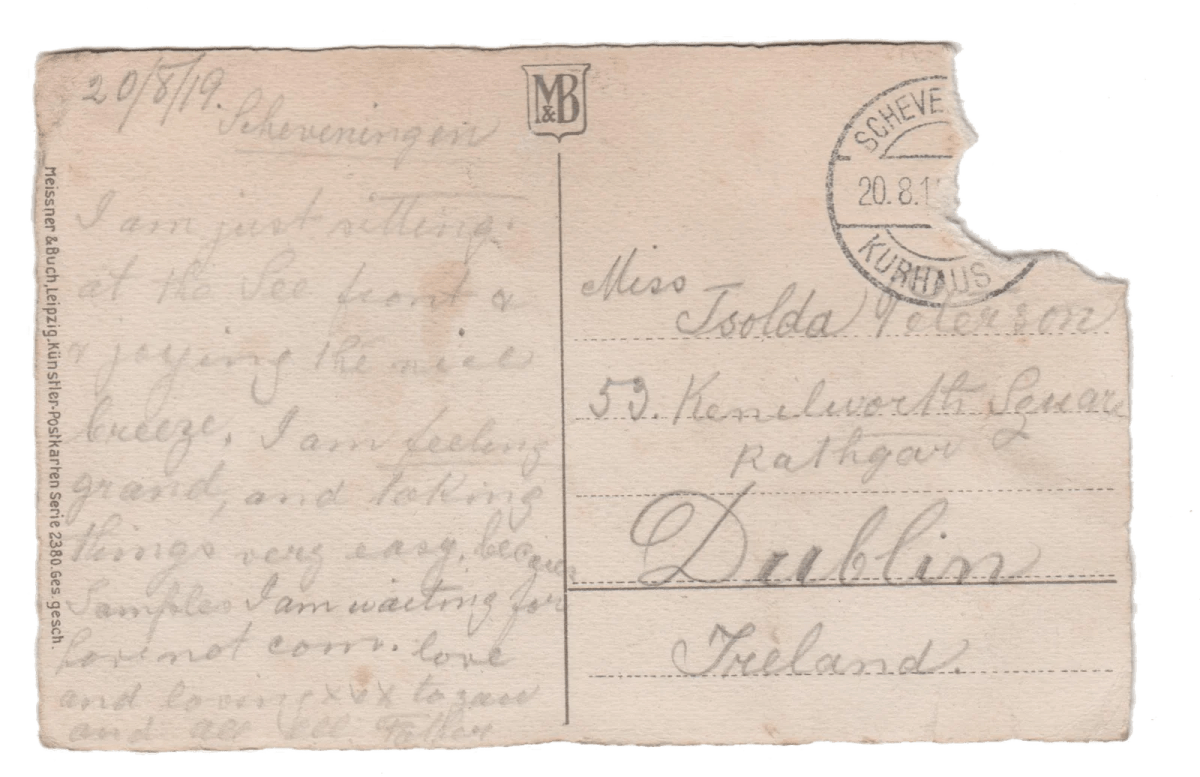 20/8/19.
Scheveningen
I am just sitting
at the See front &
joying the nice
breeze. I am feeling
grand, and taking
things very easy, because
Samples I am waiting for
not com. love
and loving xxx to
and all Father
M&B
Meissner & Buch, Leipzig. Künstler-Postkarten Serie 2380. Ges. gesch.
SCHEVE
20.8.1
KURHAUS
Miss
Isolda Peterson
53. Kenilworth Squar
Rathgar
Dublin
Ireland.